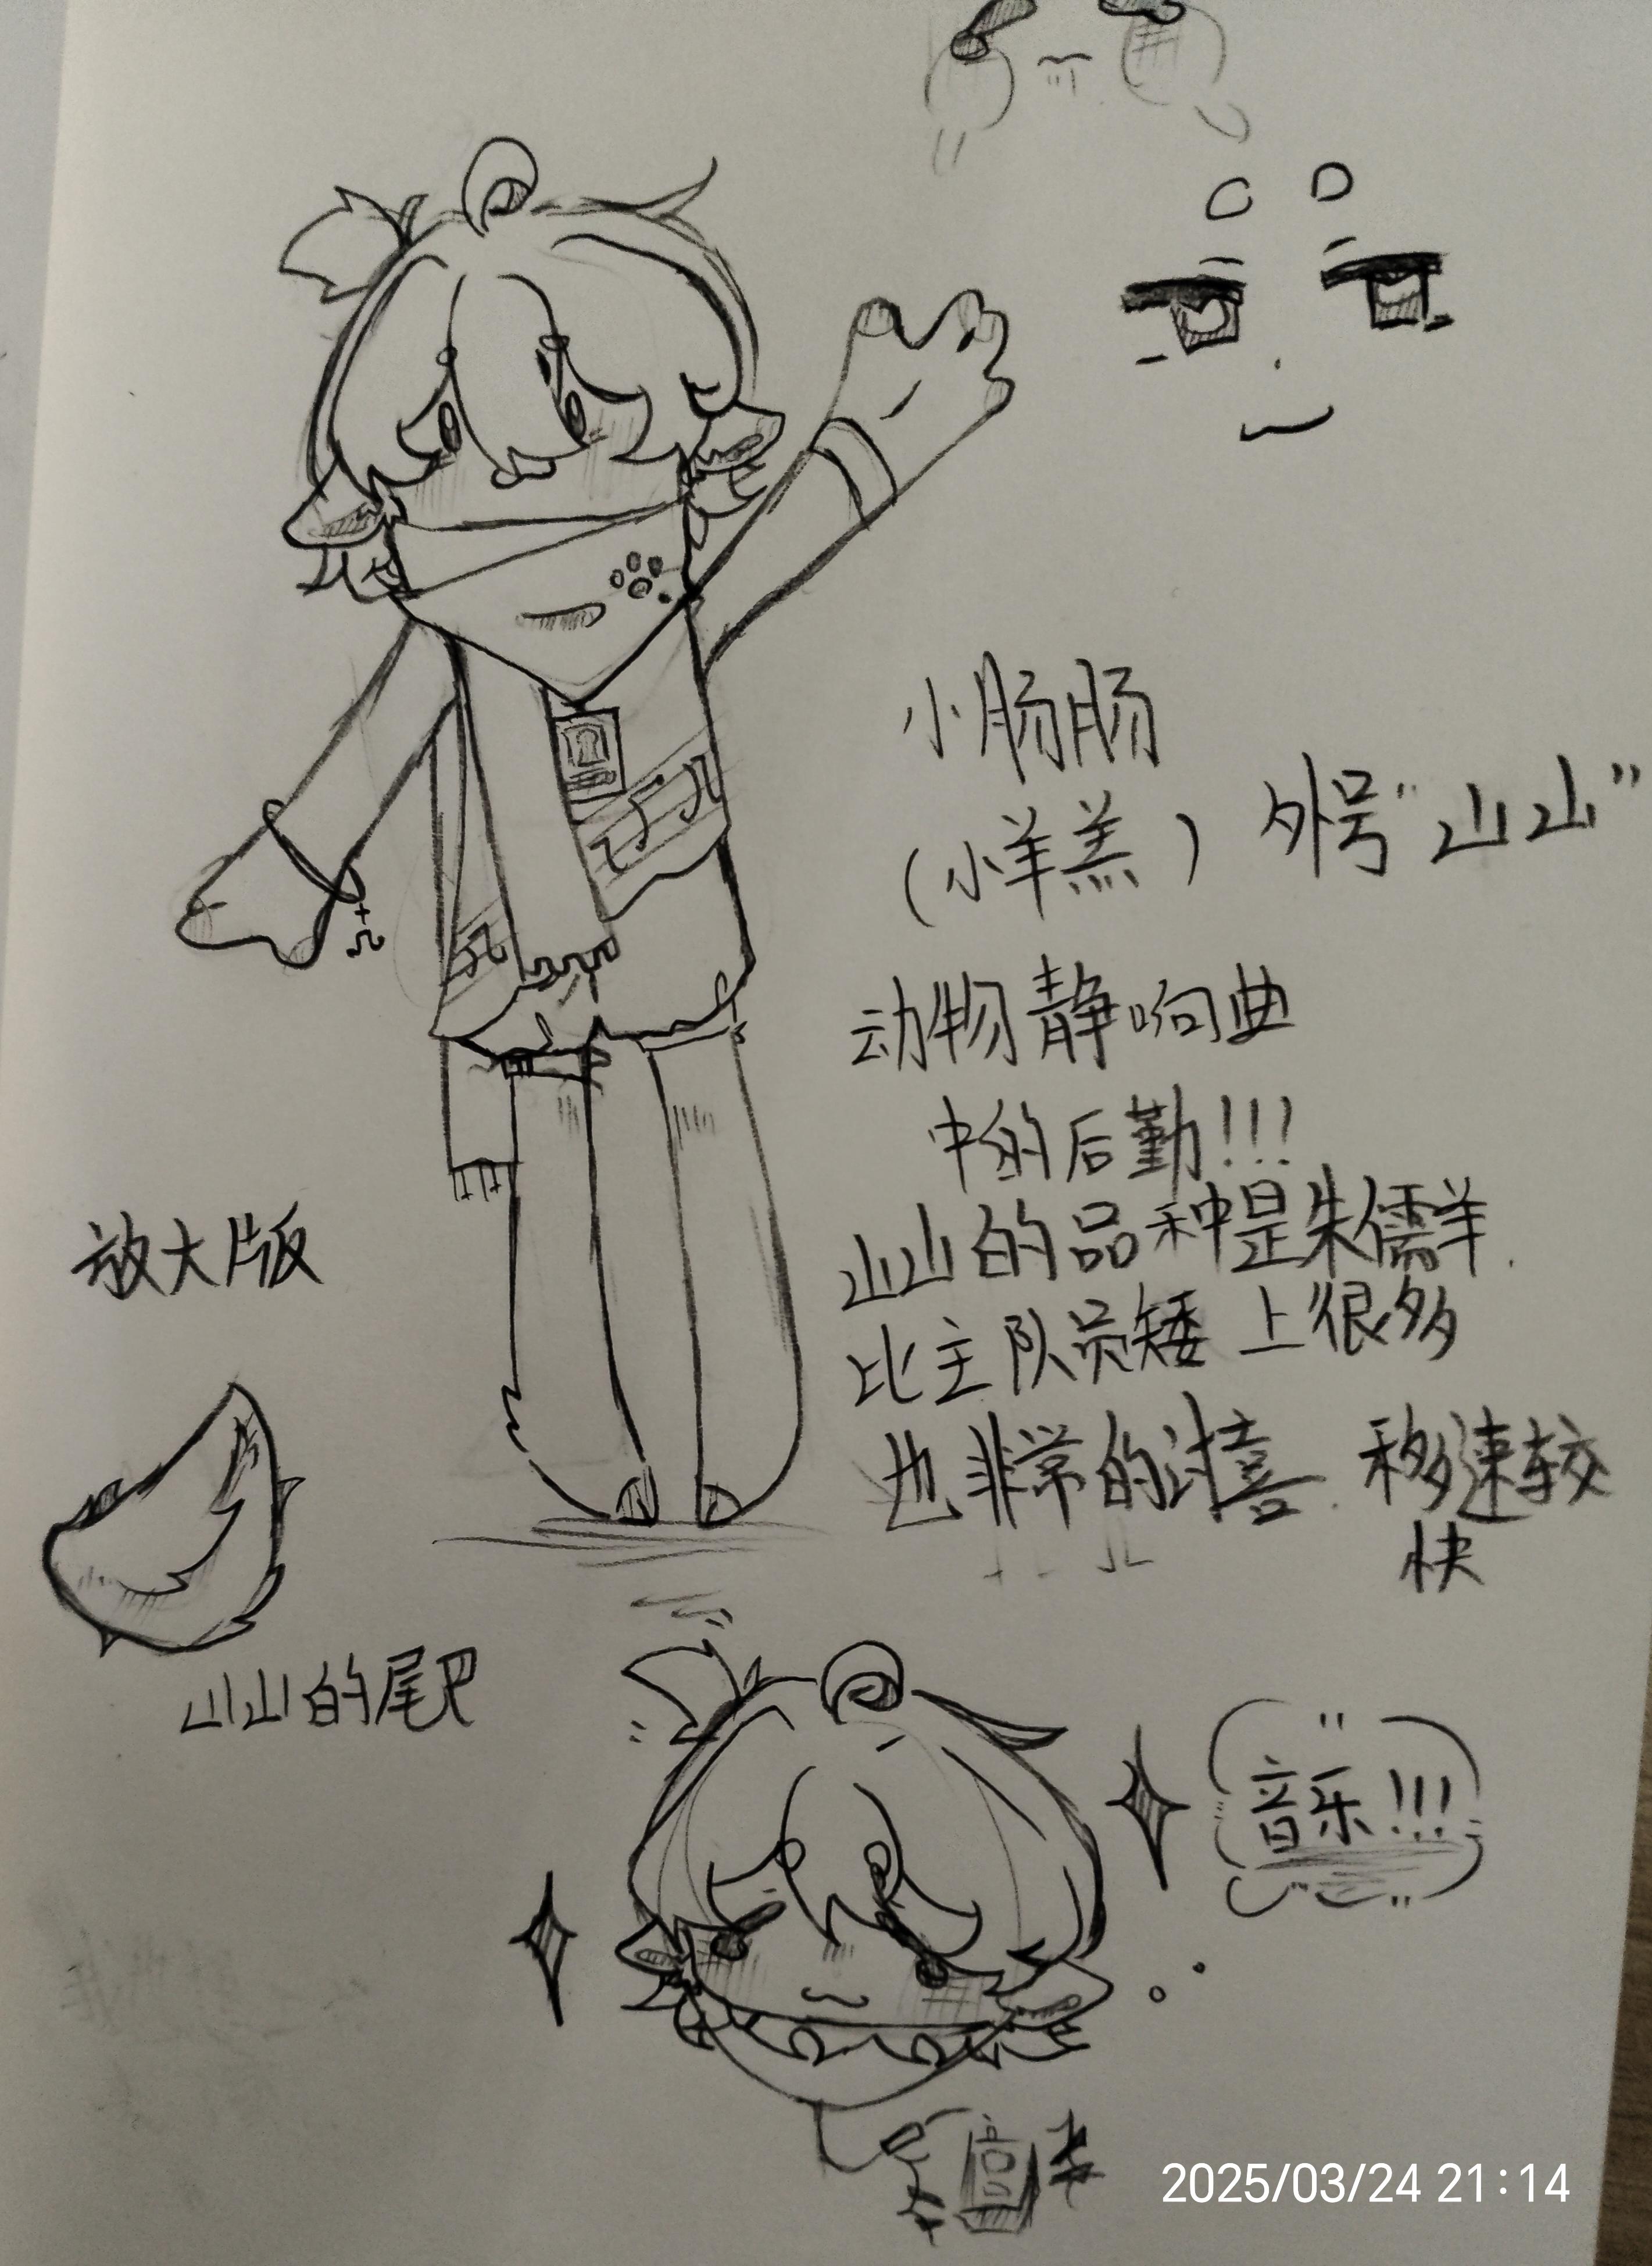 小肠肠
(小羊羔) 外号“山山”
动物静响曲
中的后勤!!!
山山的品种是朱儒羊.
比主队员矮上很多
也非常的讨喜.移速较
快
放大版
山山的尾巴
音乐!!!
2025/03/24 21:14